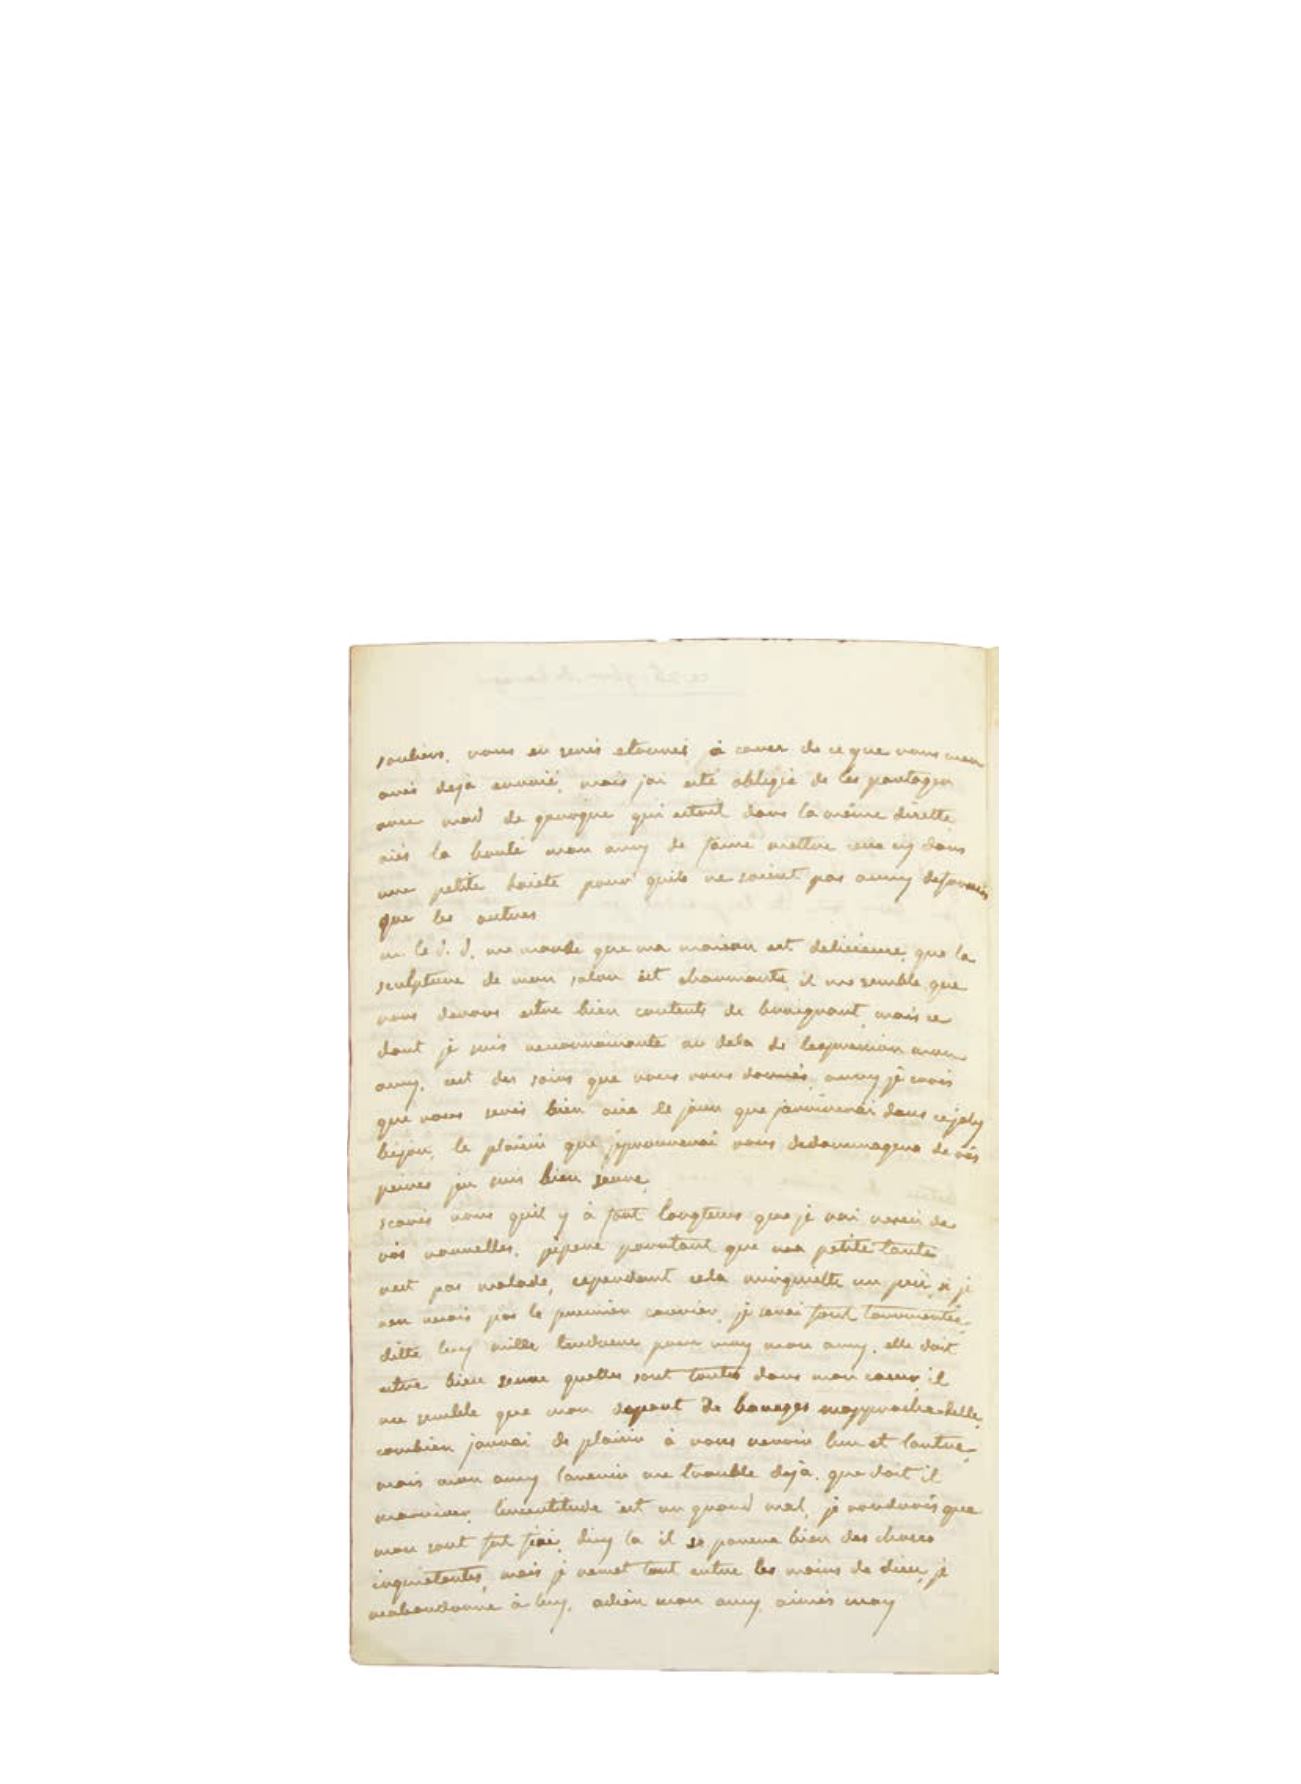 souliers. vous en serés etonnés à cause de ce que vous men
avés deja envoié, mais jai esté obligée de les partager
avec mad de qui estoit dans la même disette
aiés la bonté mon amy de faire mettre ceux cy dans
une petite boiste pour quils ne soient pas aussy
que les autres
m. le me mande que ma maison est delicieuse, que la
sculpture de mon salon est charmante, il me semble que
nous devons estre bien contents de mais ce
dont je suis reconnoissante au dela de lexpression mon
amy, cest des soins que vous vous donnés, aussy je crois
que vous serés bien aise le jour que jarriverai dans ce joly
bijou, le plaisir que jeprouverai vous dedommagera de vos
peines jen suis bien seure,
scavés vous quil y à fort longtems que je nai receu de
vos nouvelles, jespere pourtant que ma petite tante
nest pas malade, cependant cela minquiette un peu, si je
nen recois pas le premier courier, je serai fort tourmentée,
ditte luy mille tendresse pour moy mon amy, elle doit
estre bien seure quelles sont toutes dans mon coeur, il
me semble que mon depart de bareges mapproche delle,
combien jaurai de plaisir à vous revoir lun et lautre,
mais mon amy lavenir me trouble deja, que doit il
marriver, lincertitude est un grand mal, je voudrois que
mon sort fut fixé, dicy la il se passera bien des choses
inquietantes, mais je remet tout entre les mains de dieu, je
mabandonne à luy, adieu mon amy, aimés moy